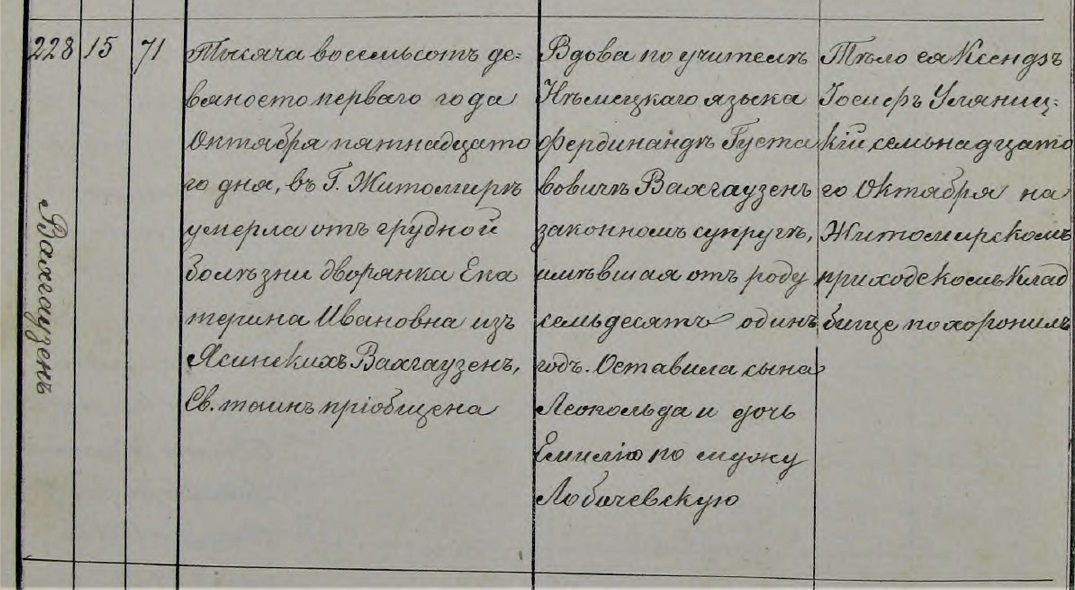 228 15 71
Вахгаузенъ
Тысяча восемьсотъ де=
вяносто перваго года
Октября пятнадцато
го дня, въ Г. Житомирѣ
умерла отъ грудной
болѣзни дворянка Ека
терина Ивановна изъ
Ясинскихъ Вахгаузенъ,
Св. таинъ пріобщена
Вдова по учителѣ
Нѣмецкаго языка
Фердинандѣ Густа
вовичѣ Вахгаузенъ
законномъ супругѣ,
имѣвшая отъ роду
семьдесятъ одинъ
годъ. Оставила сына
Леопольда и дочь
Емилію по мужу
Лобачевскую
Тѣло ея Ксендзъ
Іосифъ Уляниц=
кій семьнадцато
го Октября на
Житомирскомъ
приходскомъ Клад
бище похоронилъ